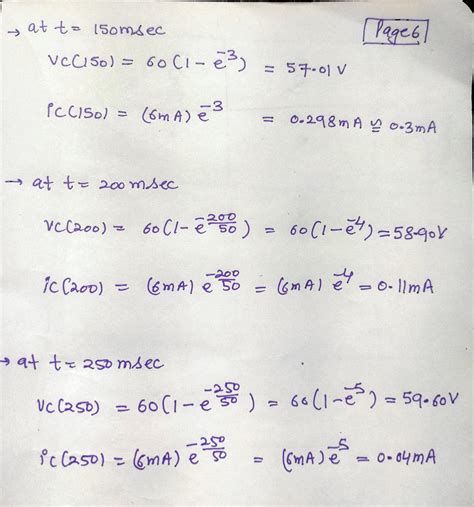 → at t = 150msec
Page 6
VC(150) = 60(1 - e^-3) = 57.01V
ic(150) = (6mA) e^-3 = 0.298mA ≌ 0.3mA
→ at t = 200msec
VC(200) = 60(1 - e^-200/50) = 60(1 - e^-4) = 58.90V
ic(200) = (6mA) e^-200/50 = (6mA) e^-4 = 0.11mA
→ at t = 250msec
VC(250) = 60(1 - e^-250/50) = 60(1 - e^-5) = 59.60V
ic(250) = (6mA) e^-250/50 = (6mA) e^-5 = 0.04mA